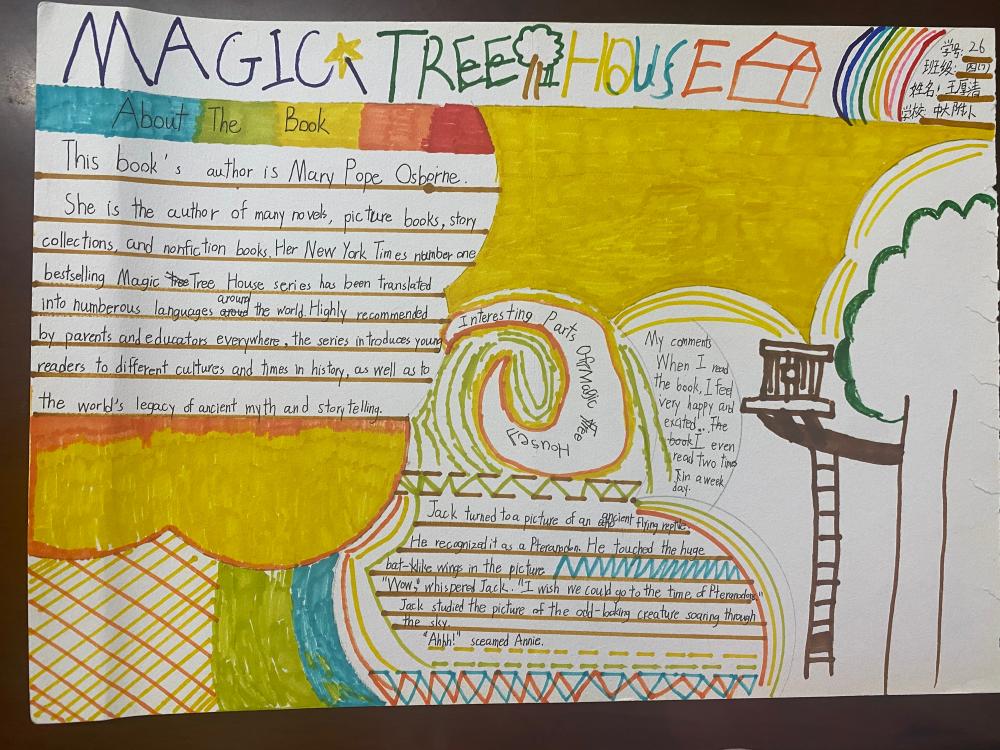 MAGIC TREE HOUSE
学号: 26
班级: 四(7)
姓名: 王厚清
学校: 中大附小
About The Book
This book's author is Mary Pope Osborne.
She is the author of many novels, picture books, story
collections, and nonfiction books. Her New York Times number one
bestselling Magic Tree Tree House series has been translated
into numberous languages around the world. Highly recommended
by parents and educators everywhere, the series introduces young
readers to different cultures and times in history, as well as to
the world's legacy of ancient myth and storytelling.
Interesting Parts Of《Magic Tree House》
My comments
When I read
the book, I feel
very happy and
excited. The
book I even
read two time
in a week
day.
Jack turned to a picture of an ancient flying reptile.
He recognized it as a Pteranodon. He touched the huge
bat-like wings in the picture.
"Wow," whispered Jack. "I wish we could go to the time of Pteranodons."
Jack studied the picture of the odd-looking creature soaring through
the sky.
"Ahhh!" sceamed Annie.